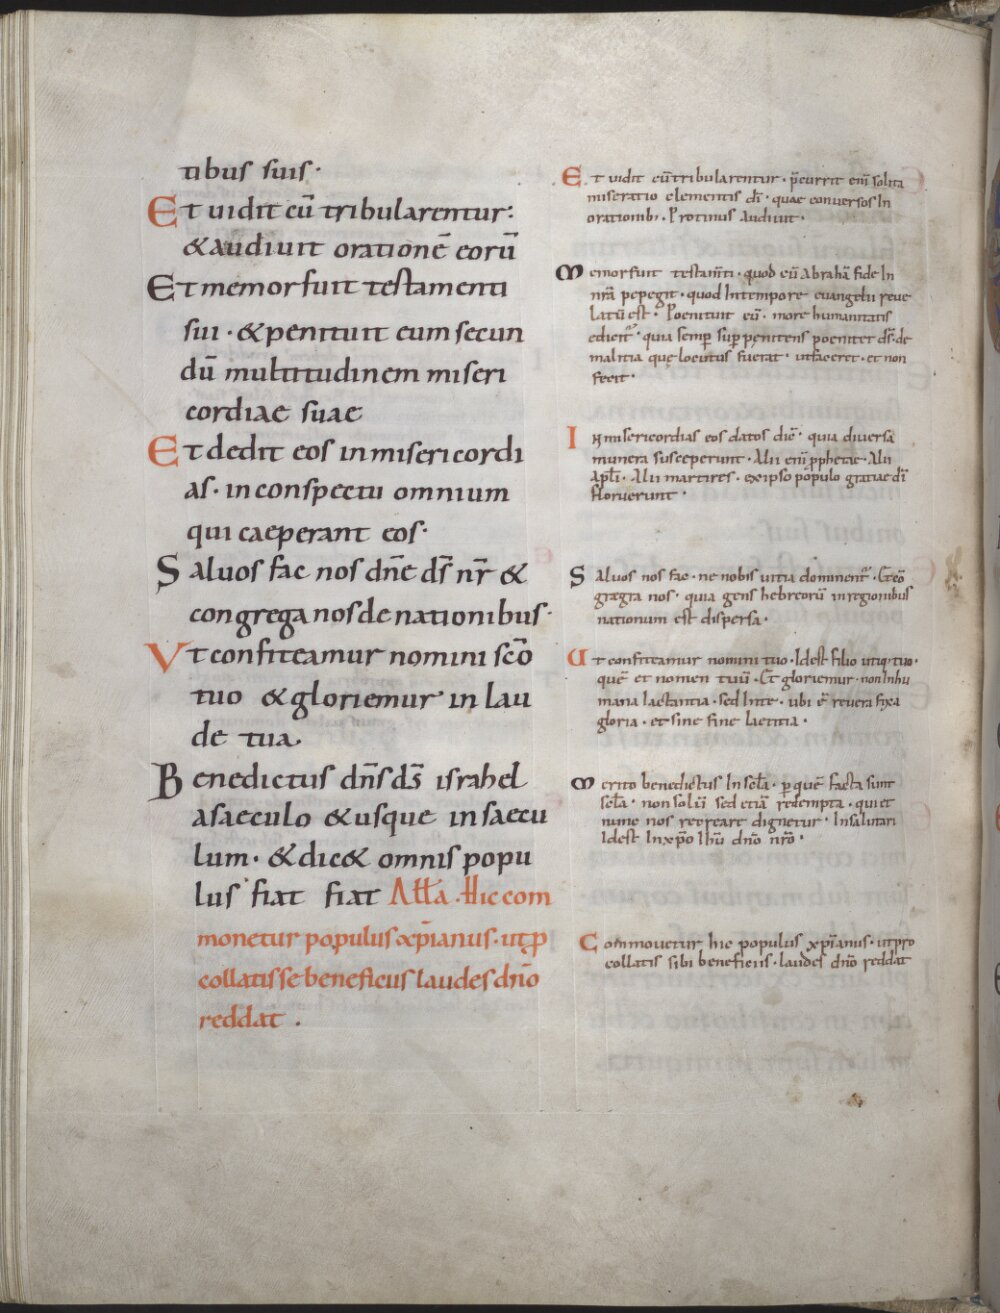 tibus suis·
Et uidit cū tribularentur:
& audiuit orationē eorū
Et memor fuit testamenti
sui · & penituit eum secun
dū multitudinem miseri
cordiae suae
Et dedit eos in misericordi
as· in conspectu omnium
qui caeperant eos·
Saluos fac nos dn̄e ds̄ nr̄ &
congrega nos de nationibus·
Vt confiteamur nomini scō
tuo & gloriemur in lau
de tua.
Benedictus dn̄s ds̄ israhel
a saeculo & usque in saecu
lum· & dic& omnis popu
lus fiat fiat All̄a. Hic com
monetur populus xp̄ianus· ut p
collatis se beneficiis laudes dn̄o
reddat .
Et uidit cū tribularentur· p̄currit eni᷒ solita
miseratio clementis dī· quae conuersos In
orationib; Protinus Audiuit·
Memor fuit testam̄ti· quod cū Abrahā fide In
nr̄a pepegit· quod Intempore euangelii reue
latū est· Poenituit eū· more humanitatis
quia semp̄ sup̄ penitens poenitet ds̄· de
malitia que locutus fuerat· ut faceret· et non
fecit·
In misericordias eos datos diē· quia diuersa
munera susceperunt· Alii eni᷒ p̄phetae· Alii
Apl̄i· Alii martires· ex ipso populo gratiae dī
floruerunt·
Saluos nos fac· ne nobis uitia dominent᷑· Et cō
grægra nos· quia gens hebreorū in regionibus
nationum est dispersa·
Ut confiteamur nomini tuo· Idest filio utiq; tuo·
quē et nomen tuū· Et gloriemur· non Inhu
mana laetantia· sed Inte· ubi ē reuera fixa
gloria· et sine fine laetitia·
Merito benedictus In scl̄a· p̱ quē facta sunt
scl̄a· non solū sed etiā redempta· qui et
nunc nos recreare dignetur· In salutari
Idest In xp̄o Ihū dn̄o nr̄o·
Commouetur hic populus xp̄ianus· ut pro
collatis sibi beneficiis· laudes dn̄o reddat